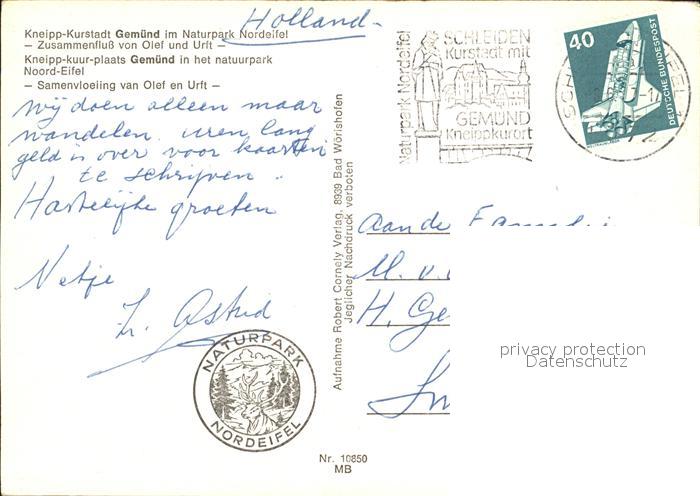 Holland-
Kneipp-Kurstadt Gemünd im Naturpark Nordeifel
– Zusammenfluß von Olef und Urft –
Kneipp-kuur-plaats Gemünd in het natuurpark
Noord-Eifel
– Samenvloeiing van Olef en Urft –
Wij doen alleen maar
wandelen. uren lang
geld is over voor kaarten
te schrijven
Hartelijke groeten
Netje
Zr. Astrid
NATURPARK
NORDEIFEL
Aufnahme Robert Cornely Verlag, 8939 Bad Wörishofen
Jeglicher Nachdruck verboten
Nr. 10850
MB
Naturpark Nordeifel
SCHLEIDEN
Kurstadt mit
GEMÜND
Kneippkurort
40
DEUTSCHE BUNDESPOST
aan de
M. v.
H. Ge
privacy protection
Datenschutz